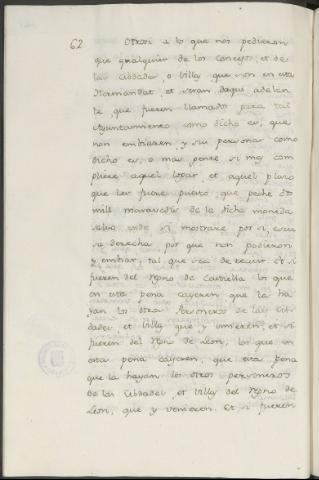 62
Otrosi a lo que nos pedieron
que qualquier de los conceios, et de
las cibdades, o Villas que son en esta
Hermandat, et seran daqui adelan
te, que fueren llamados para tal
Ayuntamiento como dicho es, que
non embiaren, y sus personas como
dicho es, o mas penre si muy com
pliere aquel logar, et aquel plaso
que les fuere puesto, que peche dos
mill maravedis de la dicha moneda
salvo ende si mostrare por si, escu
sa derecha, por que non podieron
y embiar, tal que sea de recivir et si
fueren del Regno de Castiella los que
en esta pena cayeren que la ha
yan los otros Personeros de las Cib
dades, et Villas que y vinieren, et si
fueren del Regno de Leon, los que en
esta pena cayeren, que esta pena
que la hayan los otros personeros
de las Cibdades, et Villas del Regno de
Leon, que y venieren. Et si fueren